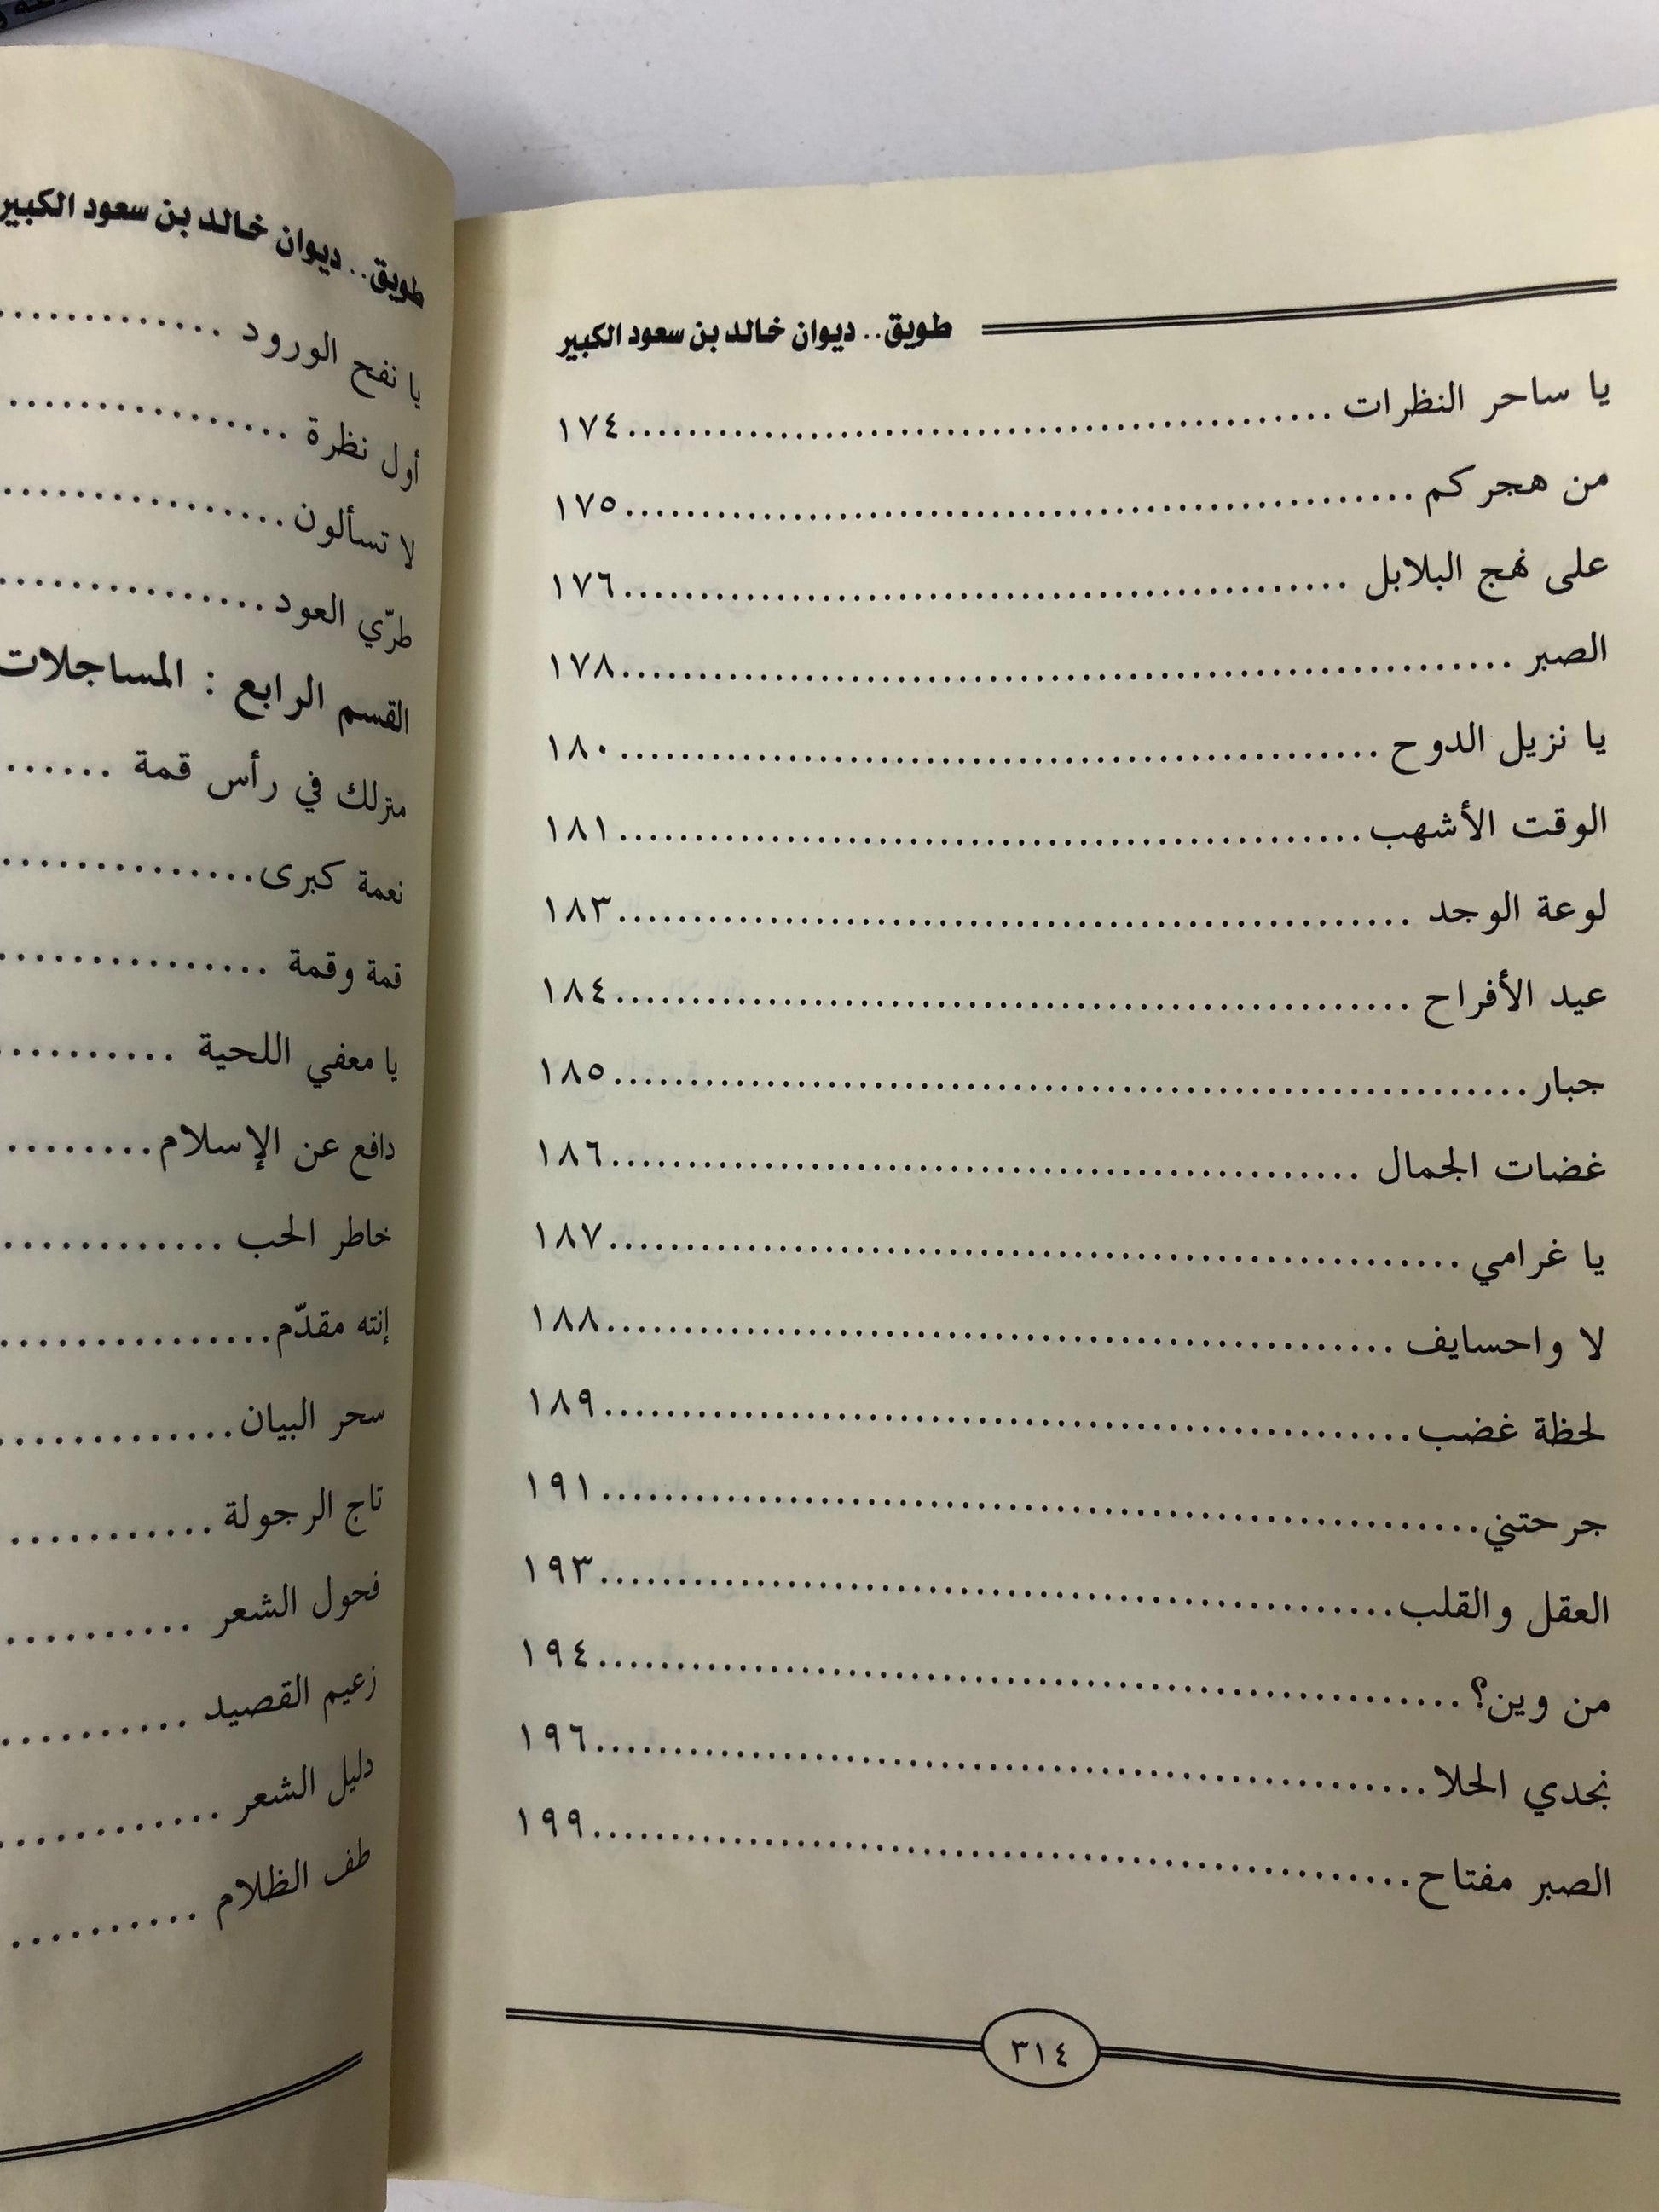 طويق.. ديوان خالد بن سعود الكبير
يا ساحر النظرات ........ ١٧٤
من هجركم ........ ١٧٥
على نهج البلابل ........ ١٧٦
الصبر ........ ١٧٨
يا نزيل الدوح ........ ١٨٠
الوقت الأشهب ........ ١٨١
لوعة الوجد ........ ١٨٣
عيد الأفراح ........ ١٨٤
جبار ........ ١٨٥
غضات الجمال ........ ١٨٦
يا غرامي ........ ١٨٧
لا واحسايف ........ ١٨٨
لحظة غضب ........ ١٨٩
جرحتني ........ ١٩١
العقل والقلب ........ ١٩٣
من وين؟ ........ ١٩٤
نجدي الحلا ........ ١٩٦
الصبر مفتاح ........ ١٩٩
٣١٤
طويق.. ديوان خالد بن سعود الكبير
يا نفح الورود ........
أول نظرة ........
لا تسألون ........
طرّي العود ........
القسم الرابع : المساجلات
منزلك في رأس قمة ......
نعمة كبرى ........
قمة وقمة ........
يا معفي اللحية ........
دافع عن الإسلام ........
خاطر الحب ........
إنته مقدّم ........
سحر البيان ........
تاج الرجولة ........
فحول الشعر ........
زعيم القصيد ........
دليل الشعر ........
طف الظلام ........